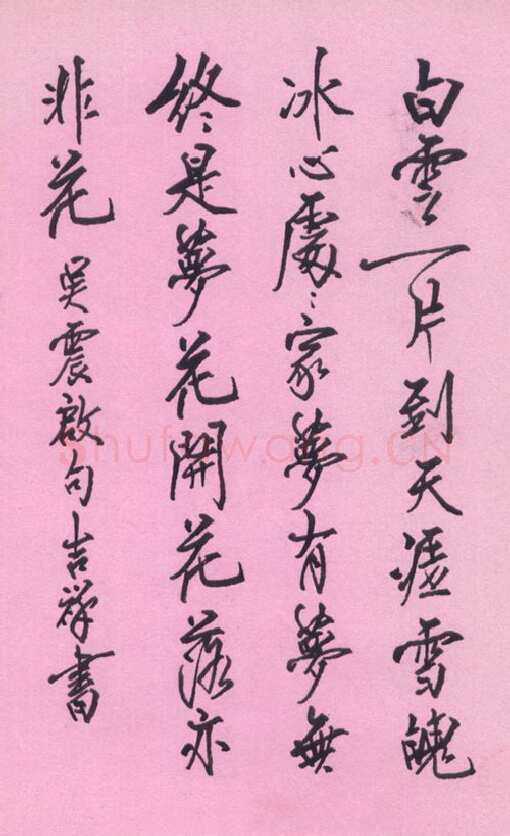 白雲一片到天涯雪魄
冰心處〻家夢有夢無
終是夢花開花落亦
非花
吳震啟句吉祥書
shufawang.CN